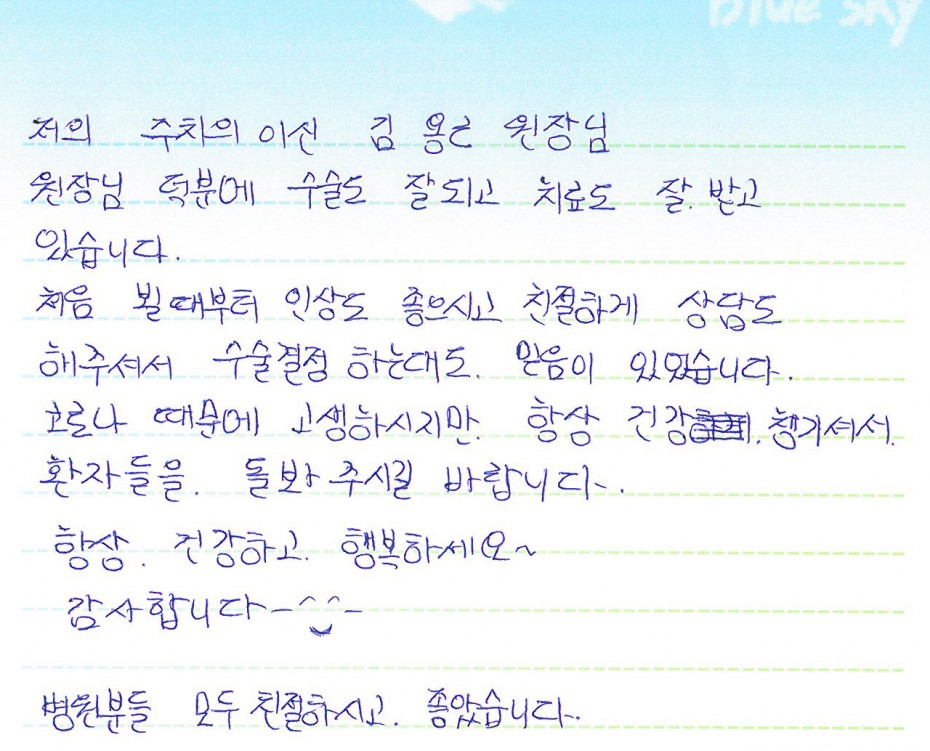 Blue sky
저의 주치의 이신 김 용근 원장님
원장님 덕분에 수술도 잘되고 치료도 잘.받고
있습니다.
처음 뵐때부터 인상도 좋으시고 친절하게 상담도
해주셔서 수술결정 하는대도. 믿음이 있었습니다.
코로나 때문에 고생하시지만. 항상 건강 .챙기셔서.
환자들을. 돌봐 주시길 바랍니다~.
항상. 건강하고. 행복하세요~
감사합니다-^⌣^-
병원분들 모두 친절하시고. 좋았습니다.